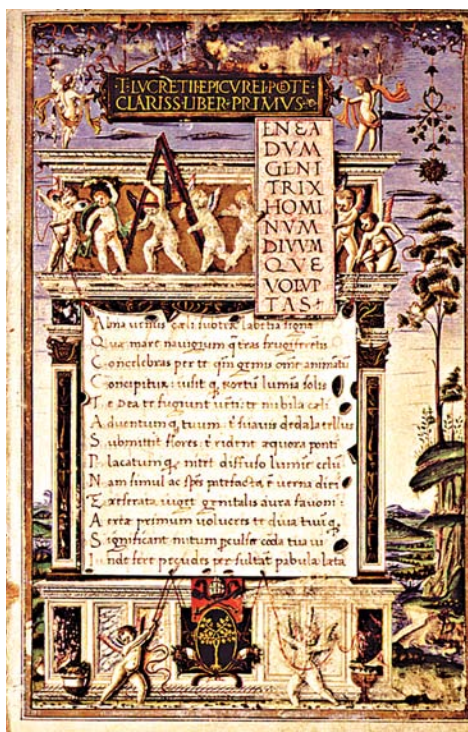 ·T·LVCRETII·EPICVREI·POTE·
CLARISS·LIBER·PRIMVS·
A
ENEA
DVM
GENI
TRIX
HOMI
NVM
DIVVM
QVE
VOLVP
TAS
Alma uenus cæli subter labentia signa
Quæ mare nauigerum q̃ tras frugiferetis
Concelebras per te qm̃ genus omē animātū
Concipitur uisit q, exortū lumina solis
Te Dea te fugiunt uēti te nubila cæli
Aduentum q, tuum t̄ suauis dedala tellus
Submittit flores t̄ rident æquora ponti
Placatum q, nitet diffuso lumīe celū
Nam simul ac spēs patefacta ē uerna diei
Exreserata uiget genitalis aura fauoni
Aeriæ primum uolucres te diua tuū q,
Significant initum perculsę corda tua ui
Inde fere pecudes persultāt pabula læta